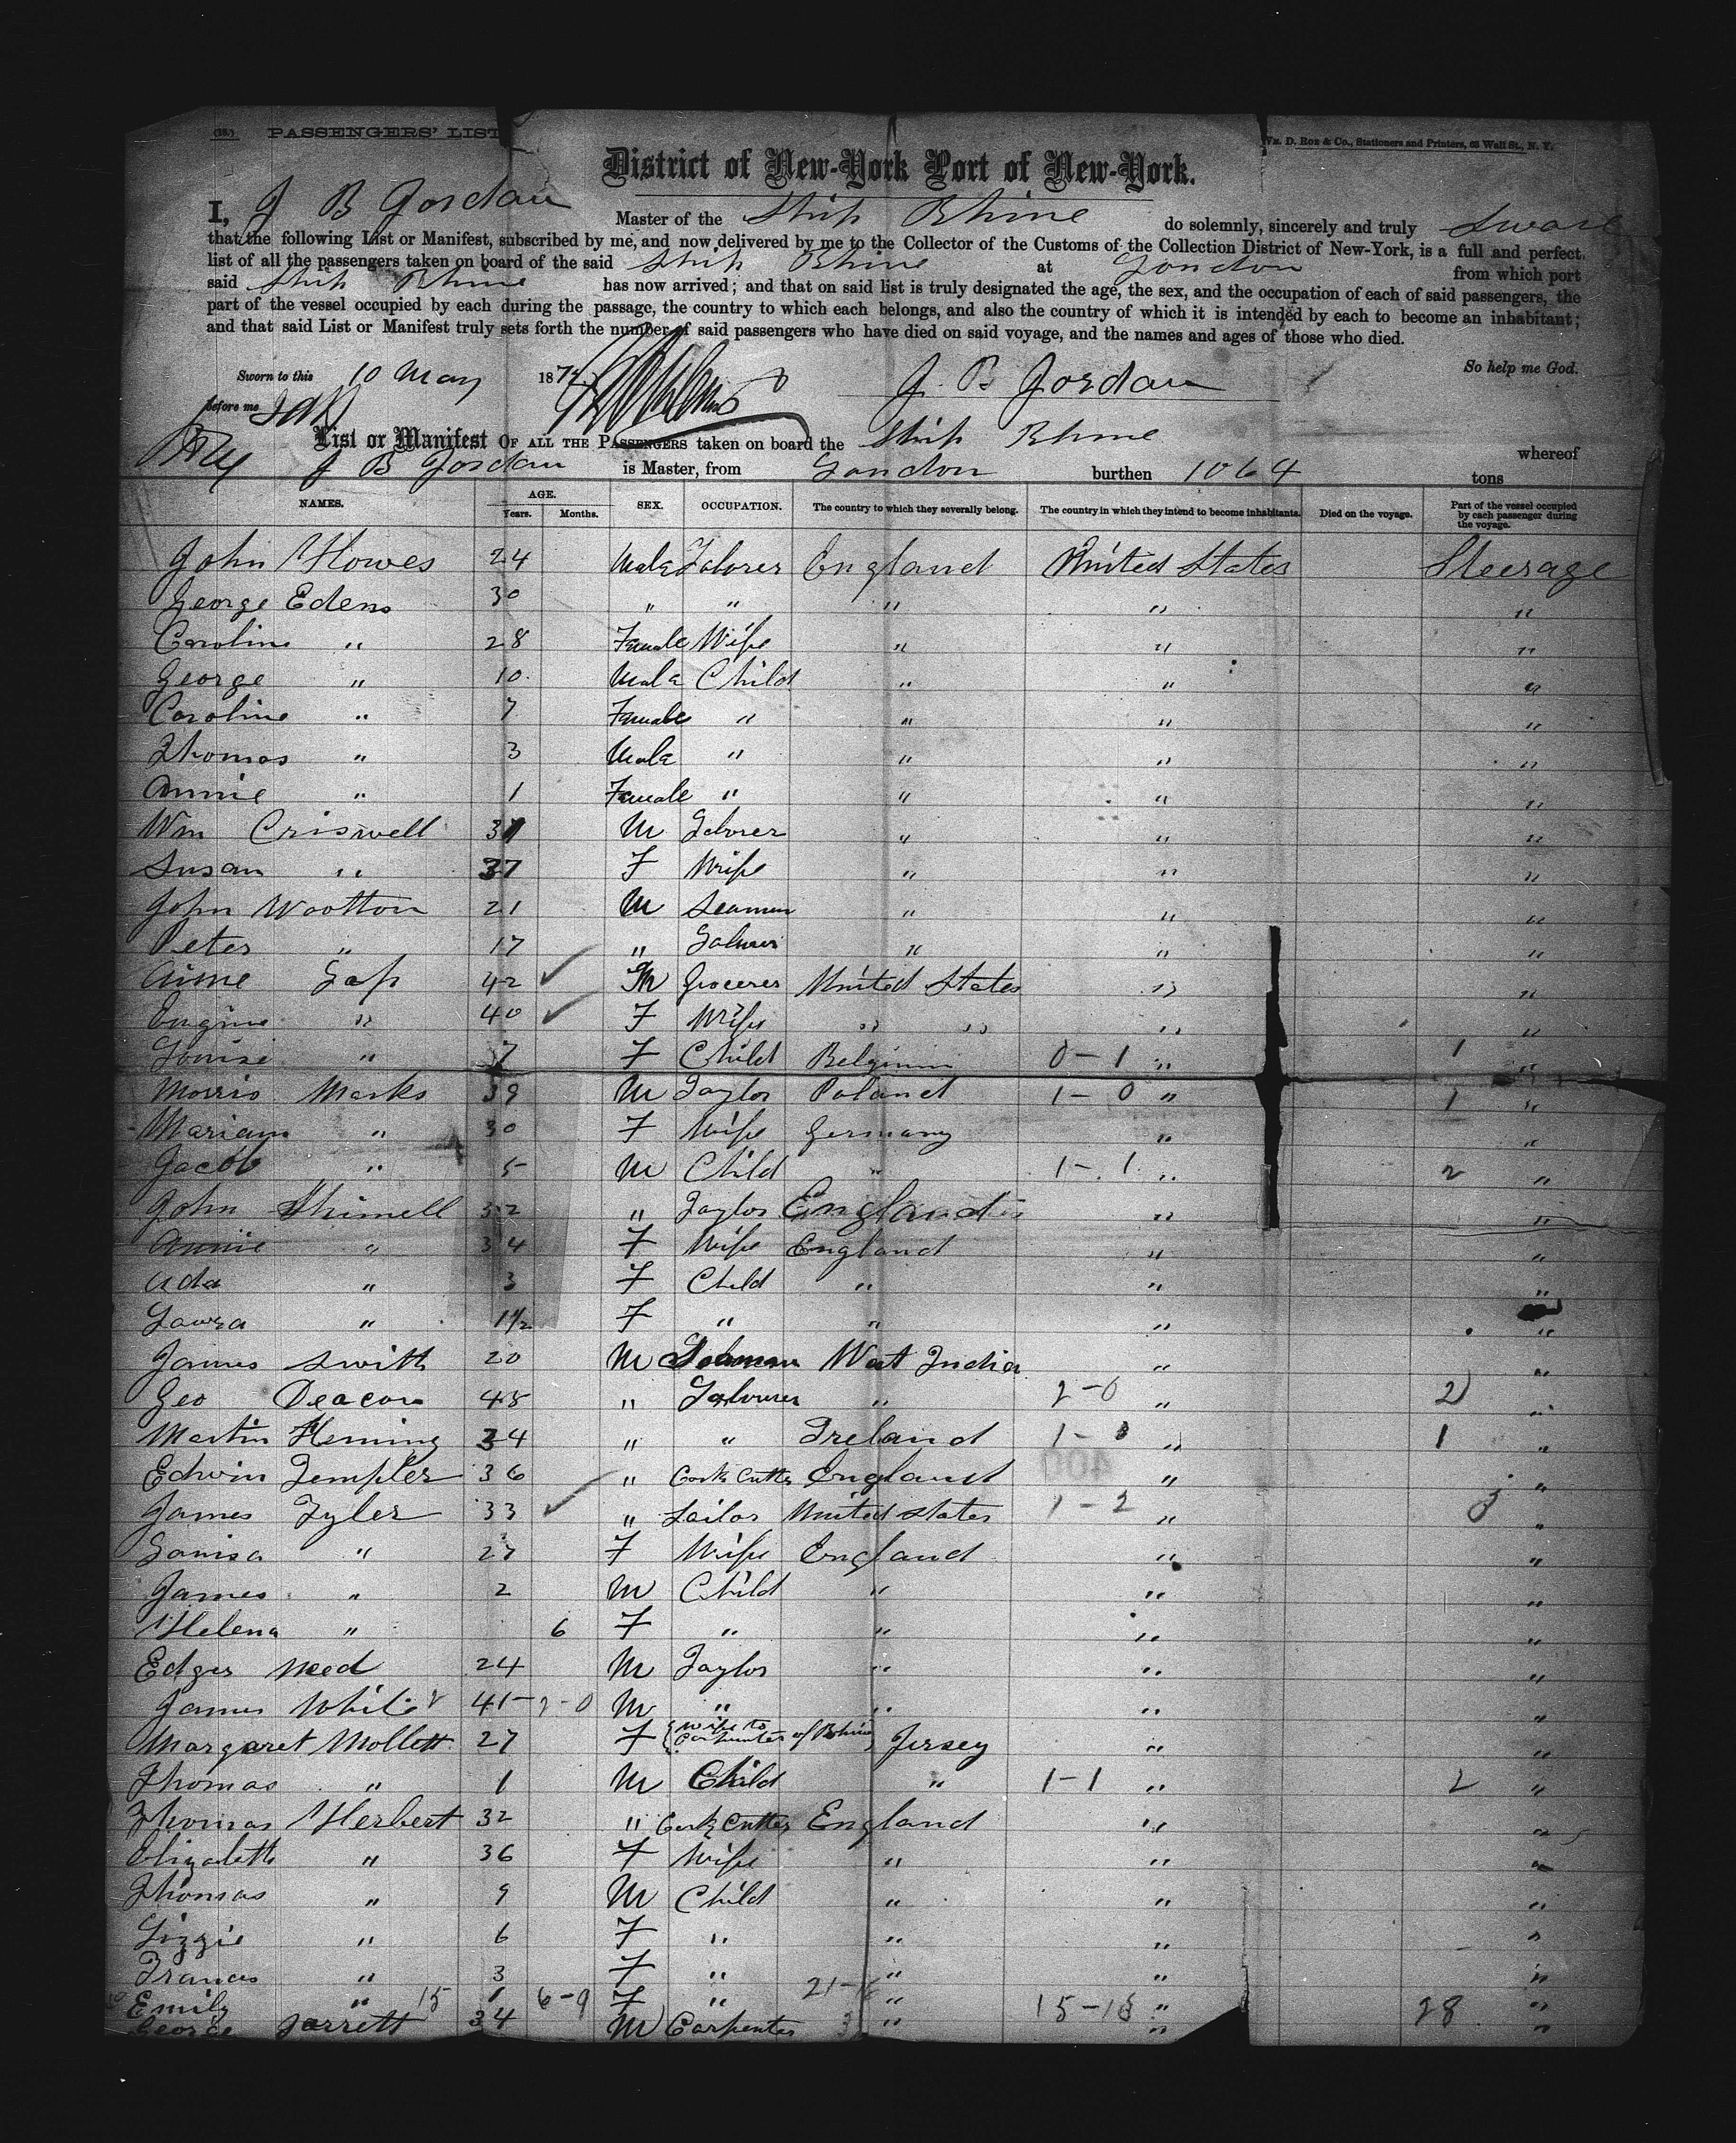 (18.) PASSENGERS' LIST
Wm. D. Roe & Co., Stationers and Printers, 63 Wall St., N. Y.
District of New-York Port of New-York.
I, J B Jordan Master of the Ship Rhine do solemnly, sincerely and truly Swear
that the following List or Manifest, subscribed by me, and now delivered by me to the Collector of the Customs of the Collection District of New-York, is a full and perfect
list of all the passengers taken on board of the said Ship Rhine at London from which port
said Ship Rhine has now arrived; and that on said list is truly designated the age, the sex, and the occupation of each of said passengers, the
part of the vessel occupied by each during the passage, the country to which each belongs, and also the country of which it is intended by each to become an inhabitant;
and that said List or Manifest truly sets forth the number of said passengers who have died on said voyage, and the names and ages of those who died.
So help me God.
Sworn to this 10 May 187 J. B Jordan
before me
List or Manifest OF ALL THE PASSENGERS taken on board the Ship Rhine whereof
J B Jordan is Master, from London burthen 1064 tons
NAMES. AGE. Years. Months. SEX. OCCUPATION. The country to which they severally belong. The country in which they intend to become inhabitants. Died on the voyage. Part of the vessel occupied by each passenger during the voyage.
John Howes 24 Male Laborer England United States Steerage
George Edens 30 " " " " "
Caroline " 28 Female Wife " " "
George " 10 Male Child " " "
Caroline " 7 Female " " " "
Thomas " 3 Male " " " "
Annie " 1 Female " " " "
Wm Criswell 3 M Laborer " " "
Susan " 37 F Wife " " "
John Wootton 21 M Seaman " " "
Peter " 17 " Labourer " " "
Aime 42 M Grocerer United States " "
" 40 F Wife " " " "
Louise " 7 F Child Belgium 0-1 " 1 "
Morris Marks 39 M Taylor Poland 1-0 " 1 "
Mariam " 30 F Wife Germany " "
Jacob " 5 M Child " 1-1 " 2 "
John Shimell 32 " Taylor England " "
Annie " 34 F Wife England " "
Ada " 3 F Child " " "
Laura " 1 1/2 F " " " "
James Swith 20 M West India " "
Geo Deacon 48 " Labourer " 2-0 " 2 "
Martin Fleming 34 " " Ireland " 1 "
Edwin Templer 36 " Cork Cutter England " "
James Tyler 33 " Sailor United States 1-2 " 3 "
Louisa " 27 F Wife England " "
James " 2 M Child " " "
Helena " 6 F " " " "
Edger Meed 24 M Taylor " " "
James White 41 2-0 M " " " "
Margaret Mollett 27 F Wife to Carpenter of Rhine Jersey " "
Thomas " 1 M Child " 1-1 " 2 "
Thomas Herbert 32 " Cork Cutter England " "
Elizabeth " 36 F Wife " " "
Thomas " 9 M Child " " "
Lizzie " 6 F " " " "
Frances " 3 F " " " "
Emily " 15 1 6-9 F " 21- " 15-13 " 28 "
George Jarrett 34 M Carpenter " " "